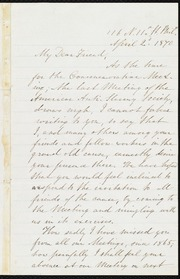 116 N. 11. St. Phil.
April 2d 1870.
My Dear Friend,
As the time
for the Commemorative Meet-
ing, the last Meeting of the
American Anti-Slavery Society,
draws nigh, I cannot forbear
writing to you, to say that
I, and many others among your
friends and fellow workers in the
grand old cause, earnestly desire
your presence there. We have hoped
that you would feel inclined to
respond to the invitation to all
friends of the cause, by coming to
the Meeting and uniting with
us in its exercises.
How sadly I have missed you
from all our Meetings, since 1865;
how painfully I shall feel your
absence at our Meeting on next